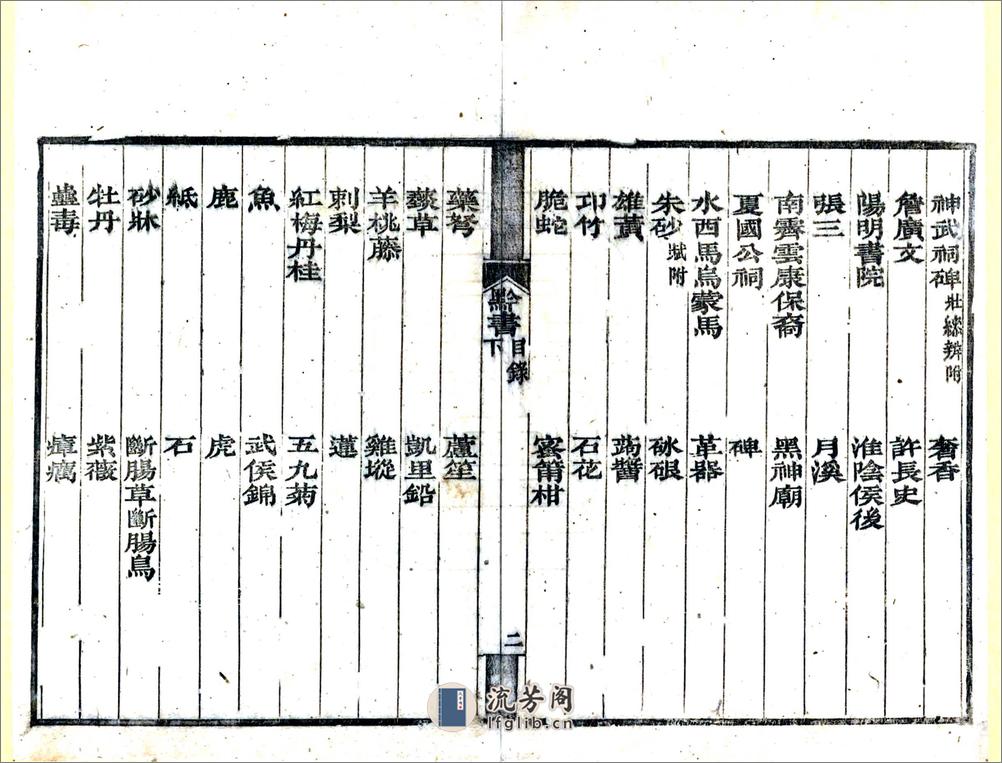 神武祠碑壯繆辨附 奢香
詹廣文 許長史
陽明書院 淮陰侯後
張三 月溪
南霽雲康保裔 黑神廟
夏國公祠 碑
水西馬烏蒙馬 革器
朱砂賦附 砅硍
雄黃 蒟醬
邛竹 石花
脆蛇 寗莆柑
黔書下 目錄 二
藥弩 蘆笙
藙草 凱里鉛
羊桃藤 雞㙡
刺梨 蓮
紅梅丹桂 五九菊
魚 武侯錦
鹿 虎
紙 石
砂牀 斷腸草斷腸鳥
牡丹 紫薇
蠱毒 瘴癘
流芳阁
lfglib.cn